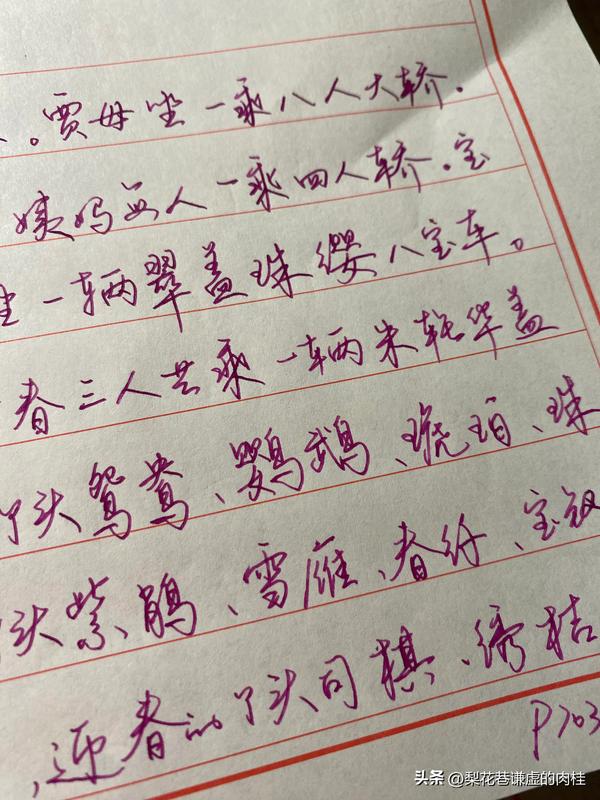 。贾母坐一乘八人大轿.
姨妈每人一乘四人轿.宝
坐一辆翠盖珠缨八宝车。
春三人共乘一辆朱轮华盖
丫头鸳鸯、鹦鹉、琥珀、珠
头紫鹃、雪雁、春纤、宝钗
迎春的丫头司棋、绣桔
P703
头条 @梨花巷谦虚的肉桂